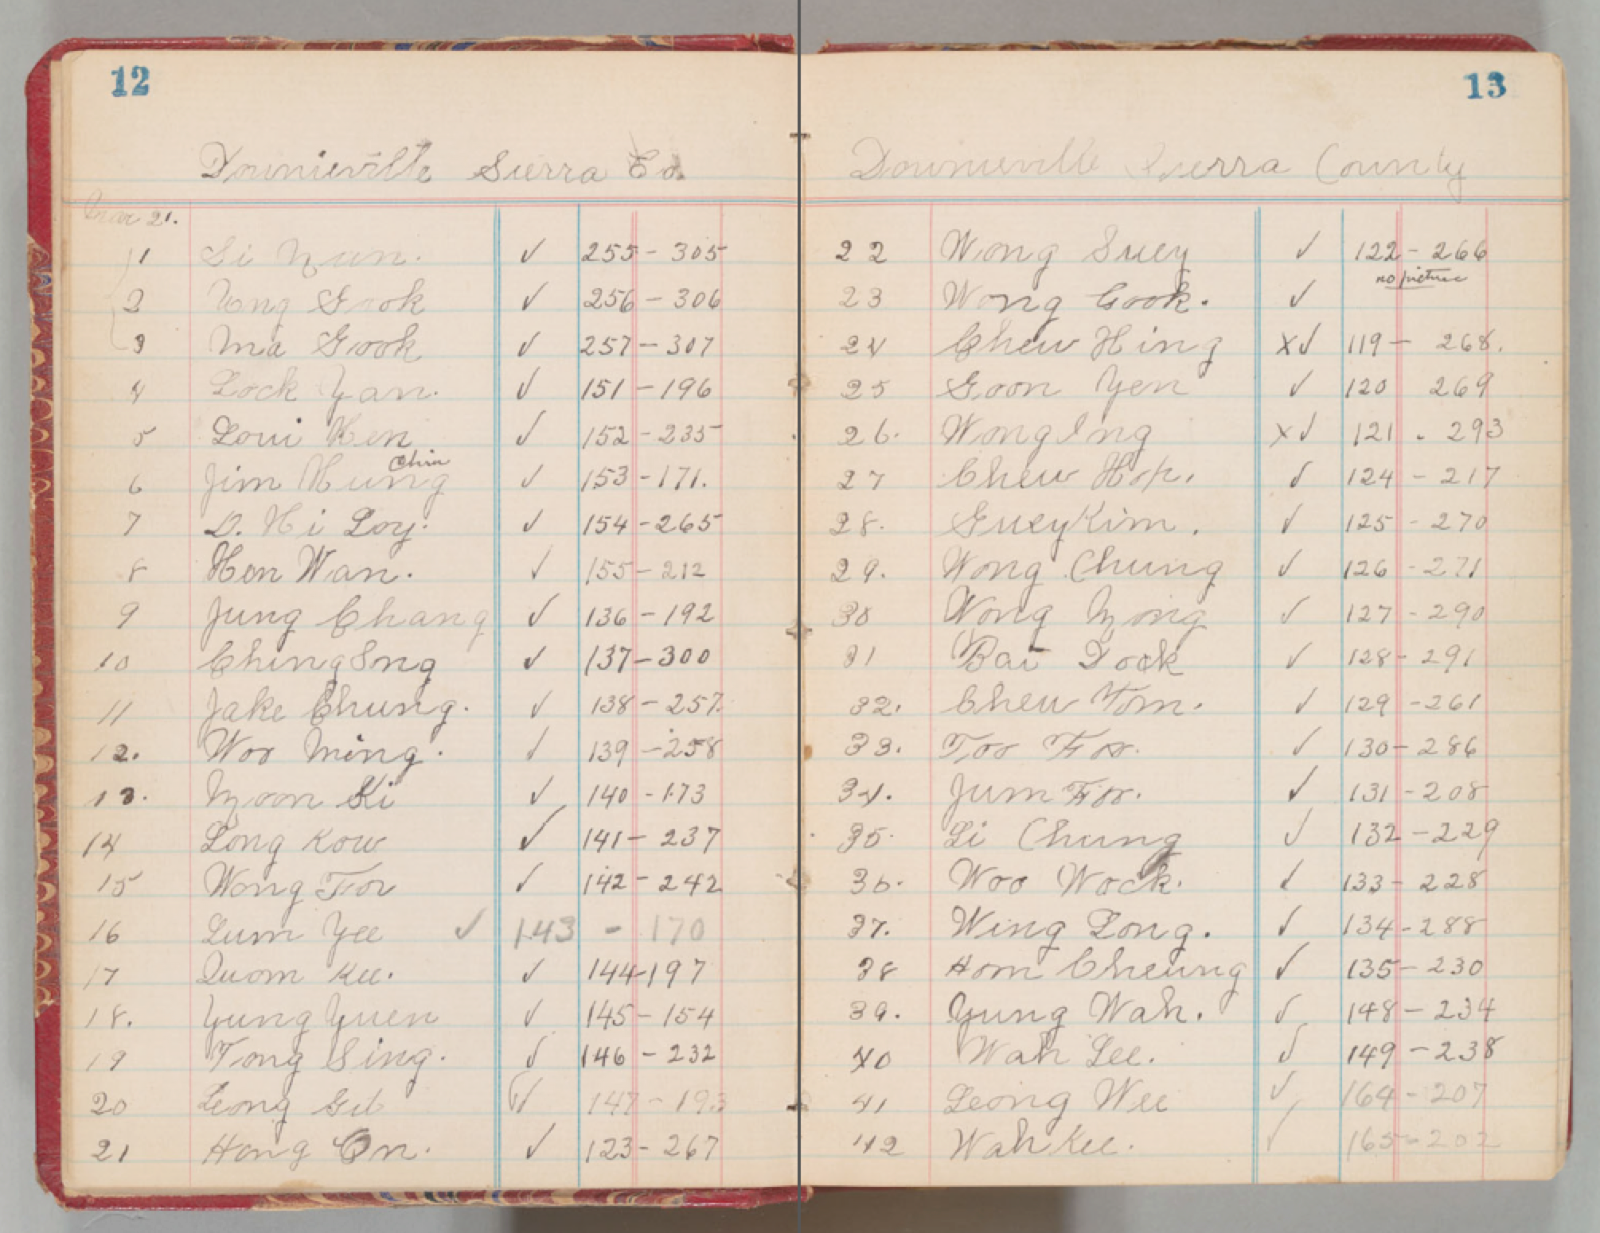 12
Downieville Sierra Co.
21.
1 Si ✓ 255 - 305
2 Gook ✓ 256 - 306
3 Ma Gook ✓ 257 - 307
4 Lock Yan. ✓ 151 - 196
5 Loui Ken ✓ 152 - 235
Chin
6 Jim Hung ✓ 153 - 171.
7 D. Hi Loy. ✓ 154 - 265
8 Hon Wan. ✓ 155 - 212
9 Jung Chang ✓ 136 - 192
10 Ching Song ✓ 137 - 300
11 Jake Chung. ✓ 138 - 257.
12. Woo Ming. ✓ 139 - 258
13. Ki ✓ 140 - 173
14 Long Kow ✓ 141 - 237
15 Wong Foo ✓ 142 - 242
16 Lum Yee ✓ 143 - 170
17 Quom Kee. ✓ 144 - 197
18. Yung Yuen ✓ 145 - 154
19 Fong Sing. ✓ 146 - 232
20 Leong ✓ 147 - 193
21 Hong On. ✓ 123 - 267
13
Downieville Sierra County
22 Wong Suey ✓ 122 - 266
no picture
23 Wong Cook. ✓
24 Chew Hing x✓ 119 - 268.
25 Goon Yen ✓ 120 269
26. Wong Ing x✓ 121 - 293
27 Chew Hop. ✓ 124 - 217
28. Guey Kim. ✓ 125 - 270
29. Wong Chung ✓ 126 - 271
30 Wong ✓ 127 - 290
31 Bai Dock ✓ 128 - 291
32. Chew Tom. ✓ 129 - 261
33. Foo ✓ 130 - 286
34. Jum Foo. ✓ 131 - 208
35. Li Chung ✓ 132 - 229
36. Woo Wock. ✓ 133 - 228
37. Wing Long. ✓ 134 - 288
38 Hom Cheung ✓ 135 - 230
39. Gung Wah. ✓ 148 - 234
40 Wah Lee. ✓ 149 - 238
41 Leong Wee ✓ 164 - 207
42 Wah Kee. ✓ 165 - 202